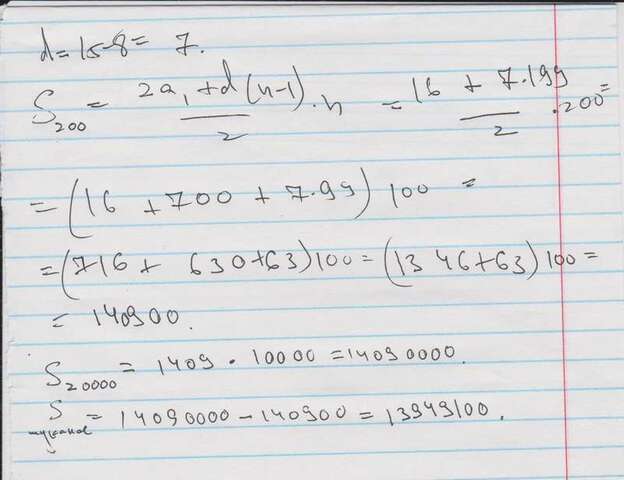 d=15-8= 7.
S₂₀₀ = (2a₁+d(n-1))/2 · n = (16 + 7·199)/2 · 200 =
= (16 + 700 + 7·99) 100 =
= (716 + 630+63)100 = (1346+63)100 =
= 140900.
S₂₀₀₀₀ = 1409 · 10000 = 14090000.
S = 14090000 - 140900 = 13949100.